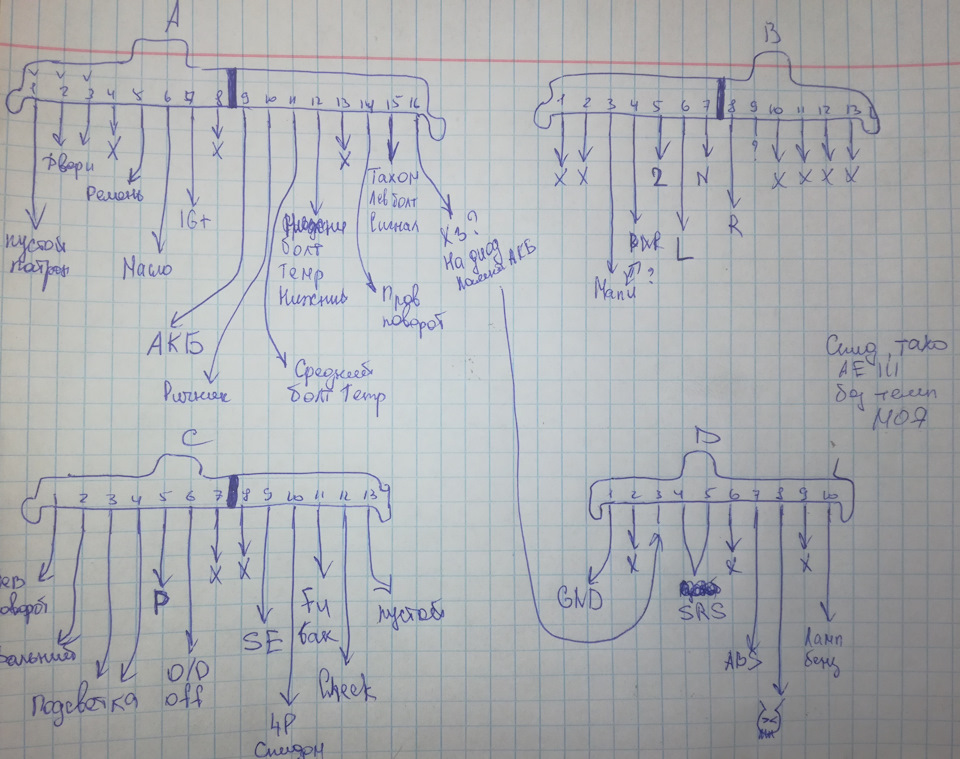 A
1 2 3 4 5 6 7 8 9 10 11 12 13 14 15 16
X
X
X
Двери
Ремень
IG+
Масло
пустой
патрон
АКБ
Ручник
болт
Темр
Нижний
Средний
болт Темр
Прав
поворот
Тахом
Лев болт
Сигнал
ХЗ?
На диод
АКБ
B
1 2 3 4 5 6 7 8 9 10 11 12 13
X X
2
N
?
X X X X
L
R
?
Спид, тахо
AE 111
без темп
МОЯ
C
1 2 3 4 5 6 7 8 9 10 11 12 13
X X
P
Подсветка
O/D
off
SE
4P
Fu
бак
Check
пустой
D
1 2 3 4 5 6 7 8 9 10
X
X
X
GND
SRS
ABS
Ламп
бенз